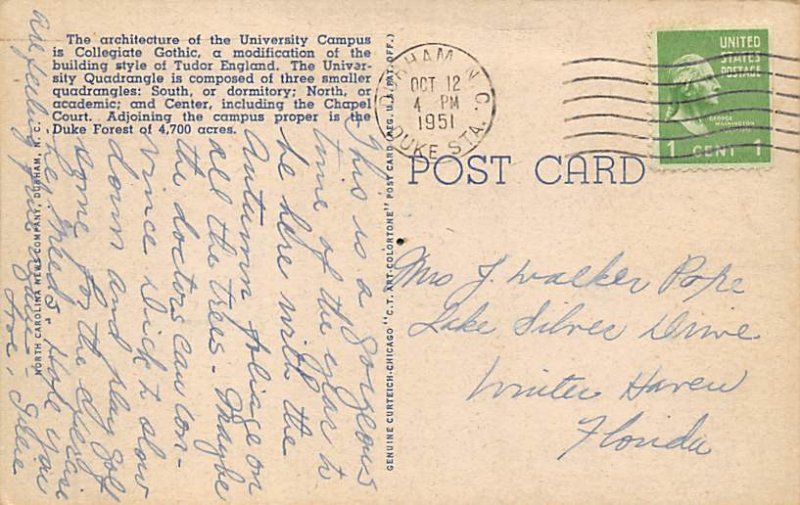 The architecture of the University Campus
is Collegiate Gothic, a modification of the
building style of Tudor England. The Univer-
sity Quadrangle is composed of three smaller
quadrangles: South, or dormitory; North, or
academic; and Center, including the Chapel
Court. Adjoining the campus proper is the
Duke Forest of 4,700 acres.
NORTH CAROLINA NEWS COMPANY, DURHAM, N. C.
GENUINE CURTEICH-CHICAGO "C.T. ART-COLORTONE" POST CARD (REG. U.S. PAT. OFF.)
POST CARD
DURHAM, N.C.
OCT 12
4 PM
1951
DUKE STA.
UNITED
STATES
POSTAGE
GEORGE WASHINGTON
1 CENT 1
This is a gorgeous
time of the year to
be here with the
Autumn foliage on
all the trees - Maybe
the doctors can con-
vince Dick to slow
down and play golf
some for the
he needs. Hope you
are feeling fine again -
Love, Irene
Mrs J. Walker Pope
Lake Silver Drive
Winter Haven
Florida